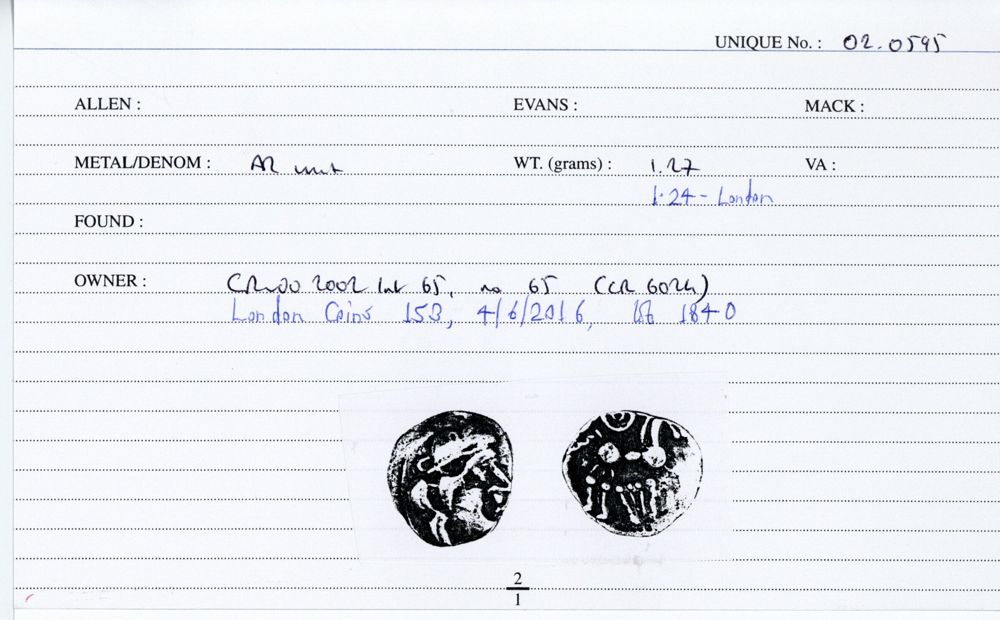 UNIQUE No. : 02.0595
ALLEN : EVANS : MACK :
METAL/DENOM : AR unit WT. (grams) : 1.27 VA :
1.24 - London
FOUND :
OWNER : 2002 65, no 65 (CR 602
London Coins 153, 4/6/2016, lot 1840
2
1